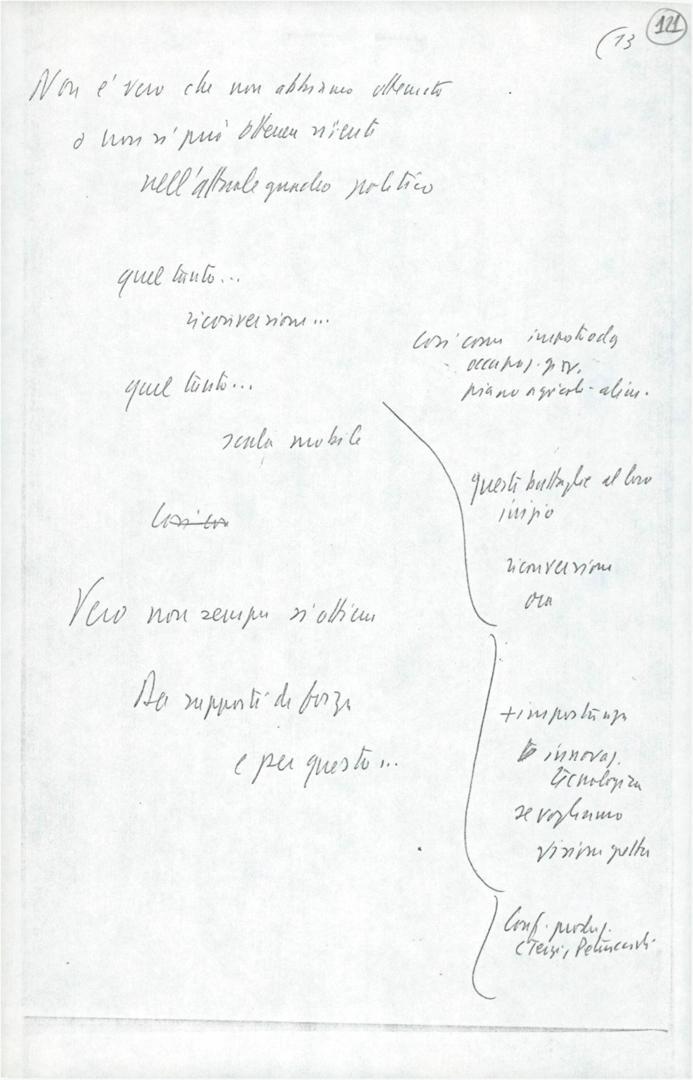 (13
121
Non è vero che non abbiamo ottenuto
o non si può ottenere niente
nell'attuale quadro politico
quel tanto...
riconversione...
quel tanto...
scala mobile
Così co
Vero non sempre si ottiene
rapporti di forza
e per questo...
così come
occupaz. giov.
piano agricolo-alim.
queste battaglie al loro
inizio
riconversione
ora
+ importanza
innovaz.
tecnologica
se vogliamo
visione
Conf. produz.